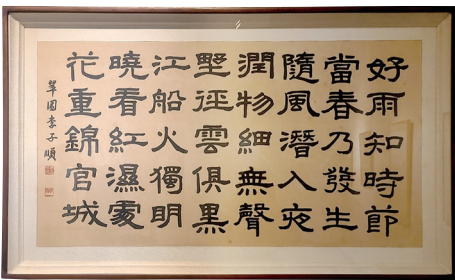 好雨知時節
當春乃發生
隨風潛入夜
潤物細無聲
埜徑雲俱黑
江船火獨明
曉看紅濕處
花重錦官城
翠園李子順